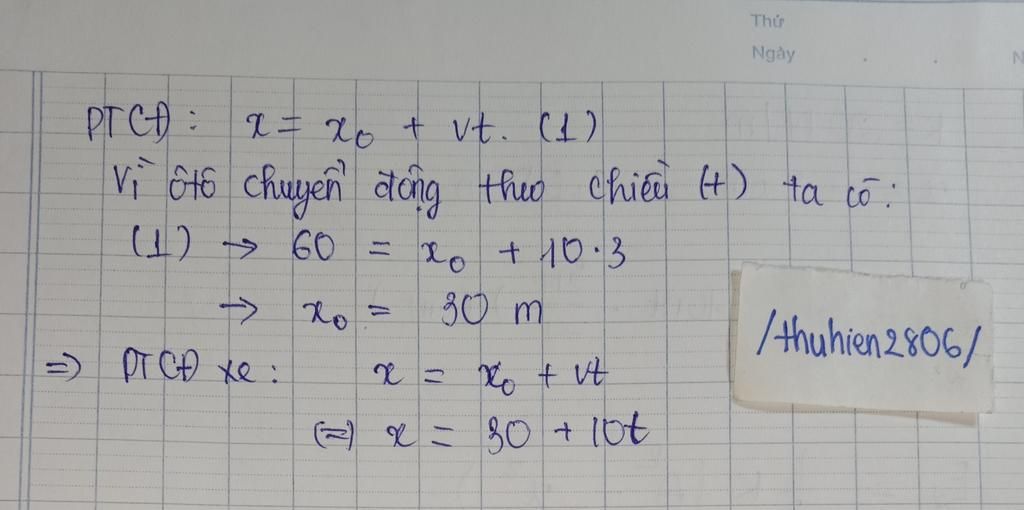 Thứ
Ngày . .
PTCĐ: x = x₀ + vt. (1)
Vì ôtô chuyển động theo chiều (+) ta có:
(1) → 60 = x₀ + 10.3
→ x₀ = 30 m
/thuhien2806/
⇒ PTCĐ xe: x = x₀ + vt
(=) x = 30 + 10t